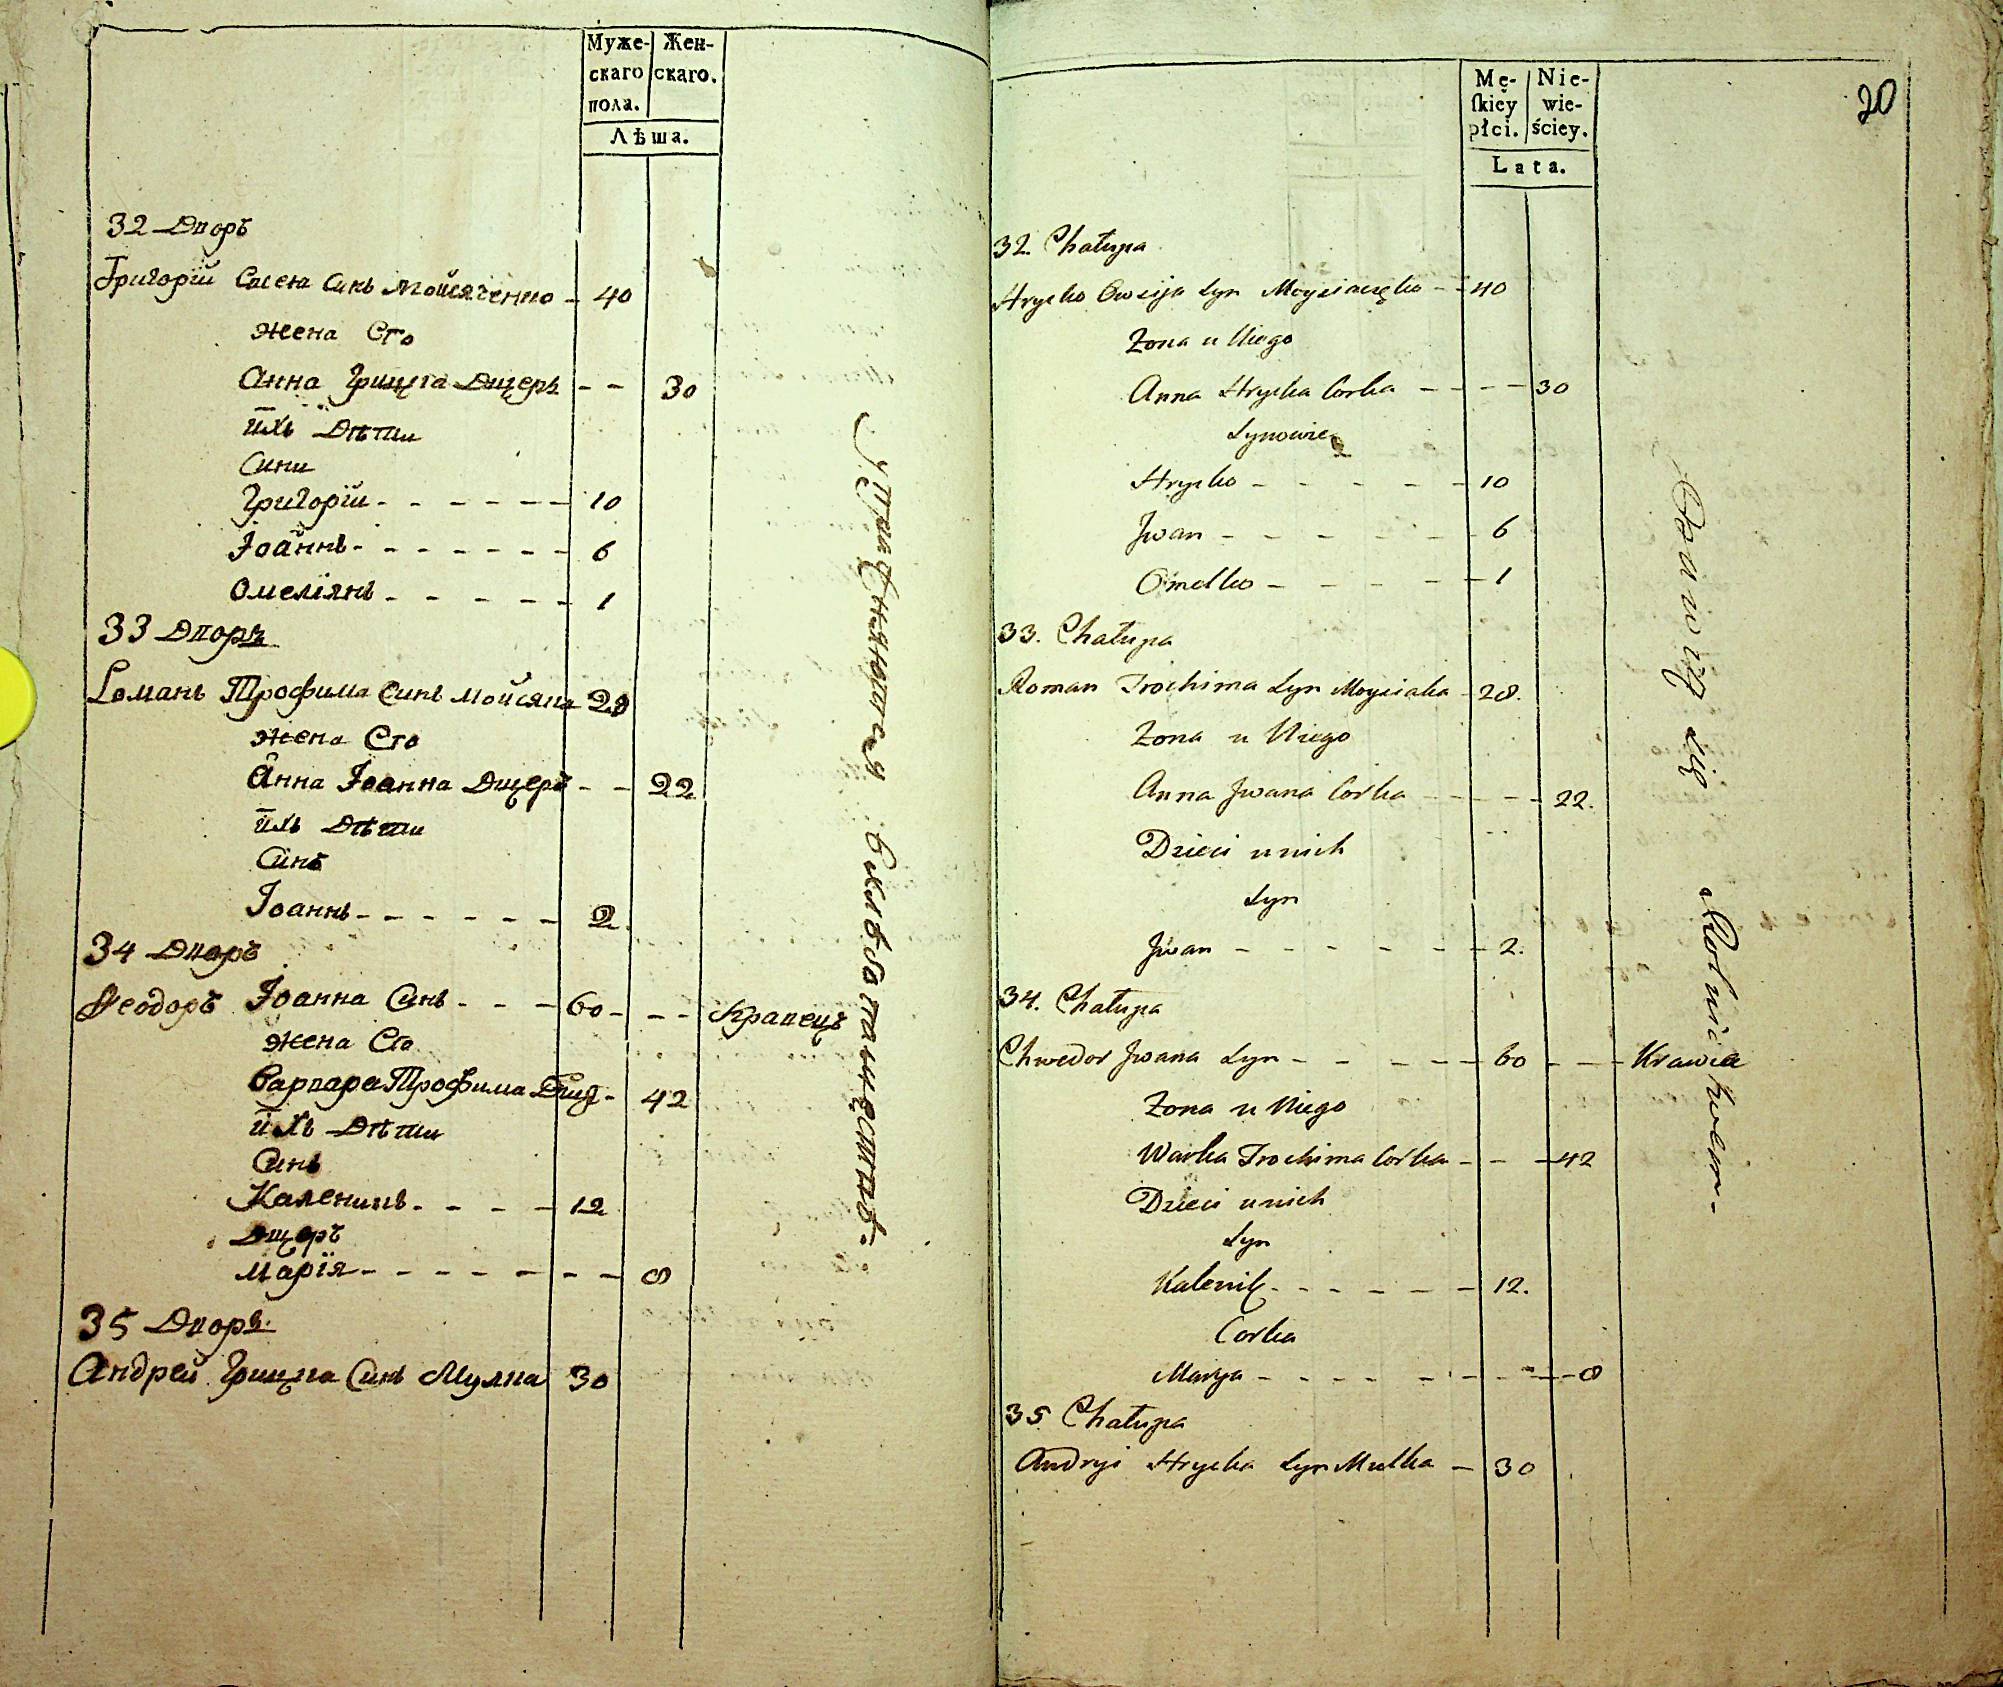 Муже- Жен-
скаго скаго.
пола.
Лѣта.
32 Дворъ
Григорій Євсея Синъ Мойсяченко - 40
жена Єго
Анна Грицка Дщерь - - 30
ихъ Дѣти
Сини
Григорій - - - - - - 10
Іоаннъ - - - - - - 6
Омеліянъ - - - - - 1
33 Дворъ
Романъ Трофима Синъ Мойсяка 28
жена Єго
Анна Іоанна Дщерь - - 22
ихъ Дѣти
Синъ
Іоаннъ - - - - - - 2
34 Дворъ
Ѳеодоръ Іоанна Синъ - - - 60 - - - Кравецъ
жена Єго
Варвара Трофима - 42
ихъ Дѣти
Синъ
Каленикъ - - - - 12
Дщерь
Марія - - - - - - - - 8
35 Дворъ
Андрей Грицка Синъ Мулка 30
Упражняются в хлѣбопашествѣ.
20
Mę- Nie-
ſkiey wie-
płci. ściey.
Lata.
32. Chałupa
Hrycko Owsija Syn Moysiaczęko - - 40
Żona u Niego
Anna Hrycka Corka - - - - 30
Synowie
Hrycko - - - - - 10
Jwan - - - - - - 6
Omelko - - - - - 1
33. Chałupa
Roman Trochima Syn Moysiaka - 28.
Zona u Niego
Anna Jwana Corka - - - - - 22.
Dzieci u nich
Syn
Jwan - - - - - - 2.
34. Chałupa
Chwedor Jwana Syn - - - - - 60 - - - Krawiec
Zona u Niego
Warka Trochima Corka - - - 42
Dzieci u nich
Syn
Kalenik - - - - - - 12.
Corka
Marya - - - - - - - - - 8
35 Chałupa
Andryi Hrycka Syn Mulka - 30
Bawią się Rolnictwem -